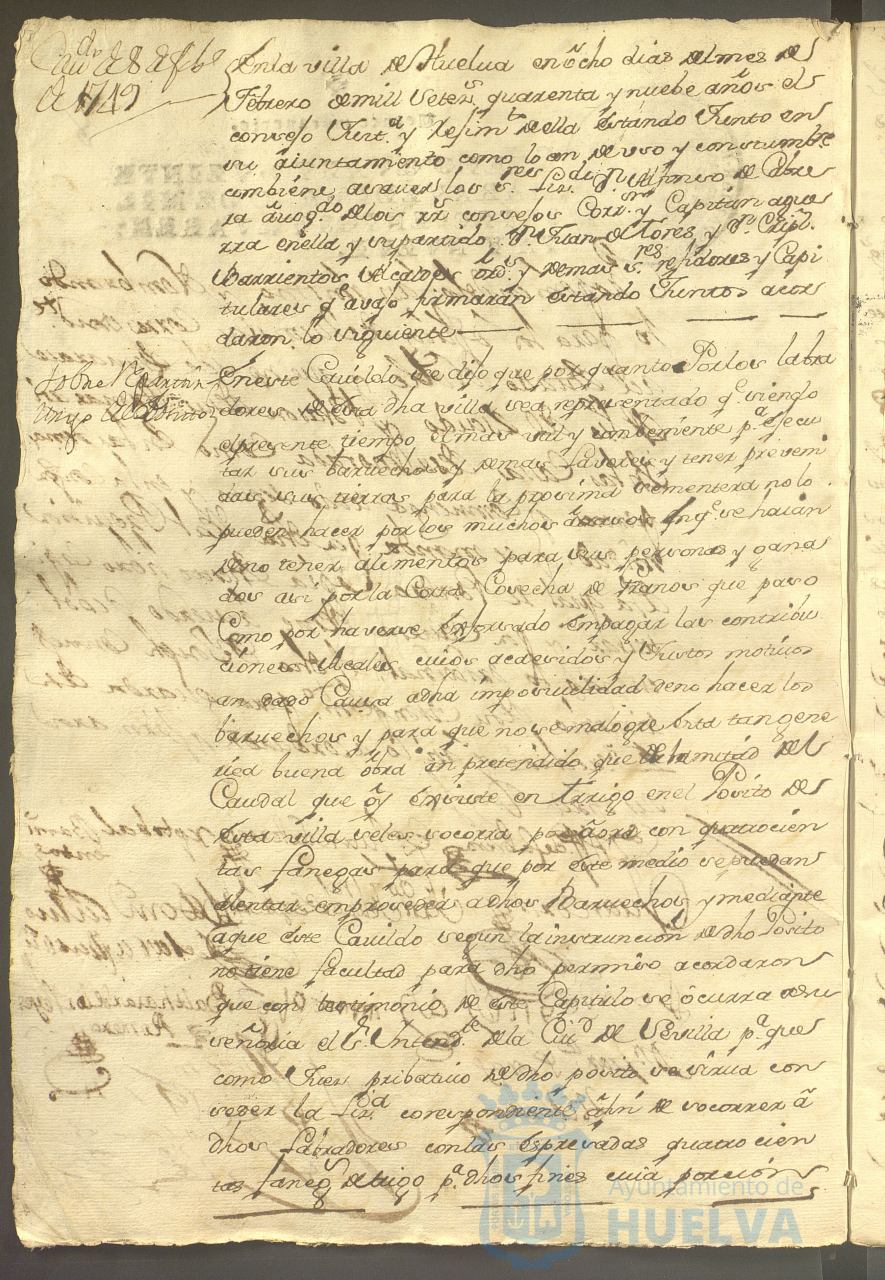 Cavdo de 8 de febo
de 1749
En la villa de Huelua en ôcho dias del mes de
Febrero de mill setes. quarenta y nuebe años el
consejo Justª y Reximto della estando Junto en
su aiuntamiento como lo an de uso y constumbre
combiene asauer los sres. Liz. dn Alfonso de
ra auogdo de los rs consejos Corrxor y Capitan aque
rra en ella y su partido, dn Juan de Tores, y dn Cripl.
Barrientos Alcaldes ords. y demas sres. rexidores y Capi
tulares qe avajo firmaran estando Juntos acor
daron lo siguiente
sobre
trigo del Posito
En este Cauildo se dijo que por quanto Por los labra
dores de esta dha villa sea representado qe siendo
el presente tiempo el mas util y combeniente pª ejecu
tar sus baruechos y demas lavores y tener preveni
das sus tierras para la proxima sementera no lo
pueden hacer por los muchos atrasos en qe. se hallan
de no tener alimentos para sus personas y gana
dos asi por la Corta Cosecha de granos que paso
Como por hauerse en pagar las contribu
ciones Reales cuios acaesidos y Justos motiuos
an dado Causa adha imposiuilidad de no hacer los
baruechos y para que no se malogre esta tan gene
rica buena ôbra an pretendido que de la mitad del
Caudal que oy existe en trigo en el Posito de
Esta villa se les socorra por aôra con quatrocien
tas fanegas para que por este medio se puedan
alentar emproseder adhos Baruechos y mediante
aque este Cauildo segun la instrucion de dho Posito
no tiene facultad para dho permiso acordaron
que con testimonio de este Capitulo se ôcurra a su
señoria el Sr. Intendte de la Ciud de Sevilla pª que
como Juez pribatiuo de dho posito se sirua con
seder la lizª corespondiente âfin de socorrer â
dhos labradores con las espresadas quatrocien
tas fanegs de trigo pª dhos fines cuia porsion
Ayuntamiento de
HUELVA